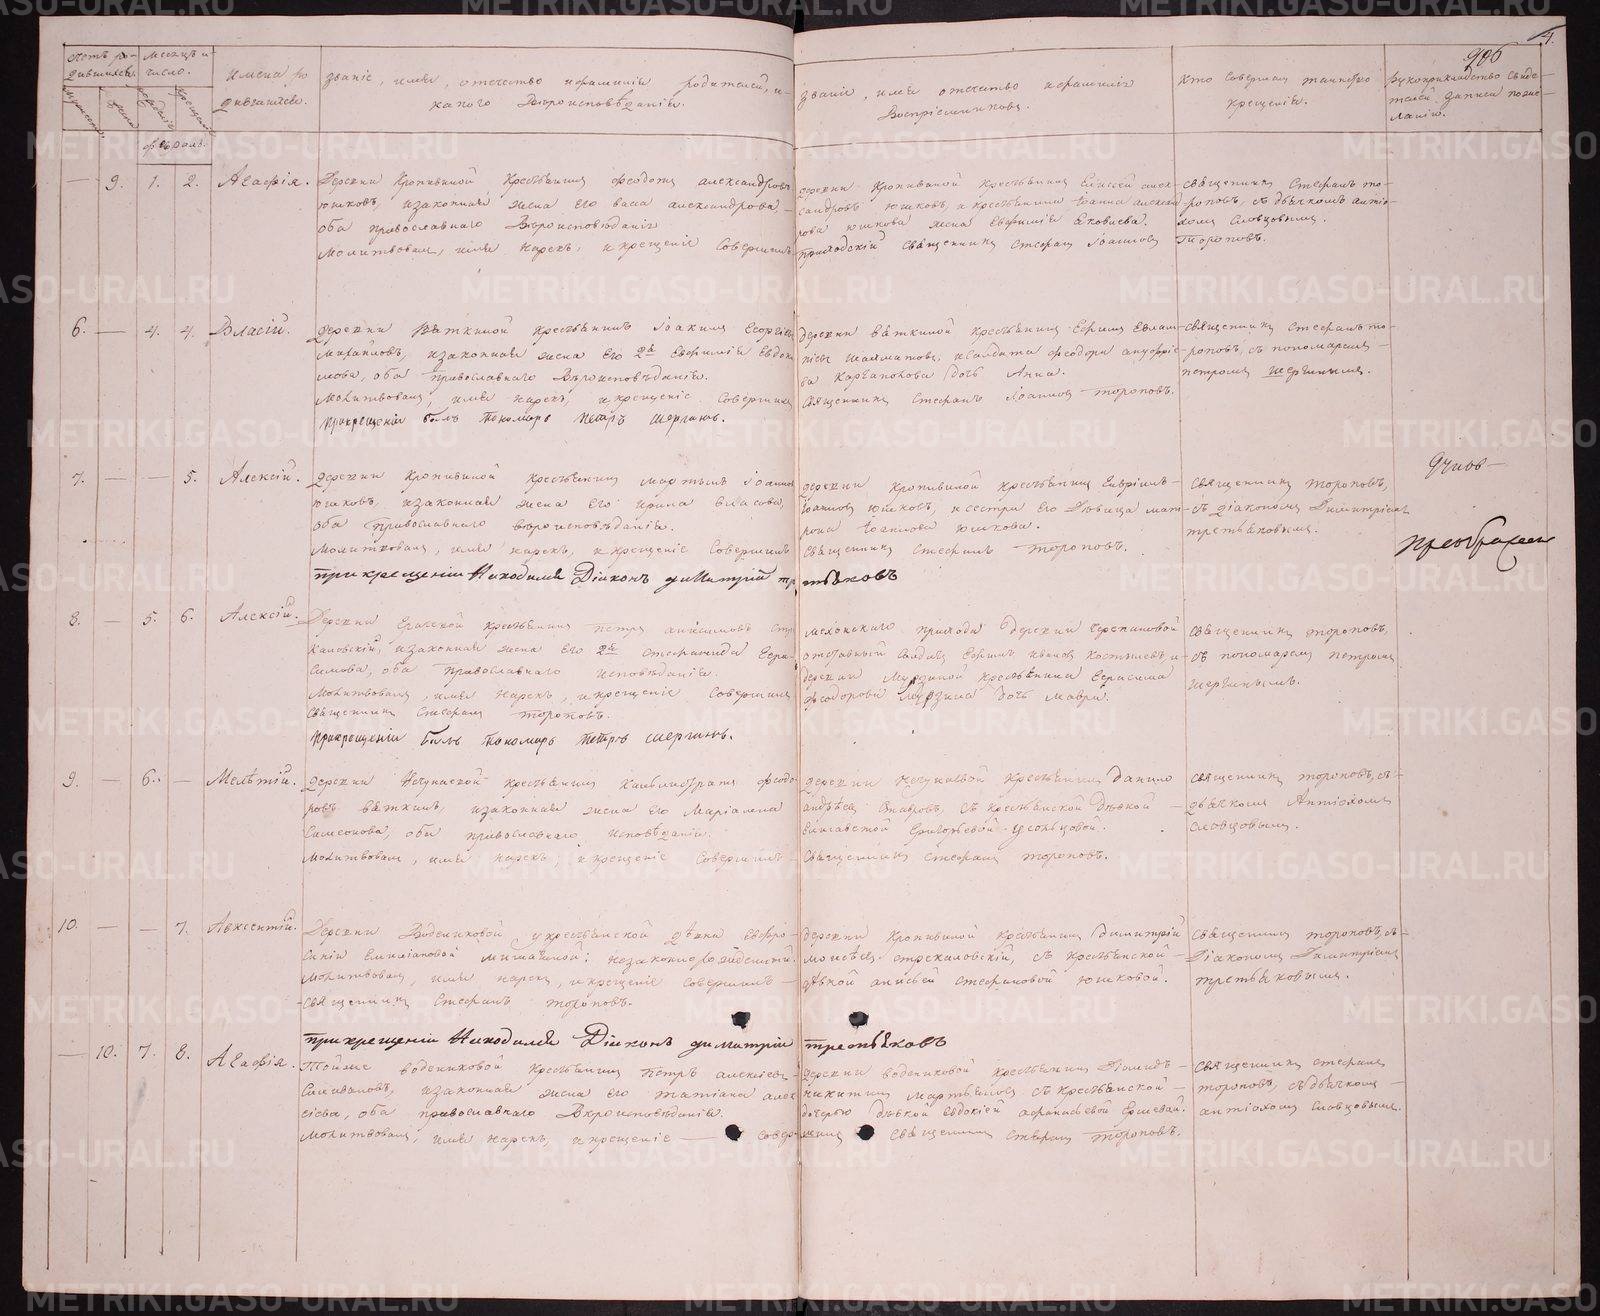 906
Счетъ ро-
дившихся.
Месяцъ и
число.
Имена ро
дившихся.
Званіе, имя, отечество и фамилія родителей, и
какого вѣроисповѣданія.
Званіе, имя отечество и фамилія
Воспріемниковъ.
Кто совершалъ таинство
крещенія.
Рукоприкладство свиде-
телей записи по же-
ланію.
февраль.
— 9. 1. 2. Агафія.
Деревни Кропивиной Крестьянинъ Феодотъ Александровъ
Юшковъ, и законная жена его Васса Александрова,
оба православнаго Вѣроисповѣданія
Молитвовалъ, имя нарекъ, и крещеніе совершилъ
деревни Кропивиной крестьянинъ Елисей Алек-
сандровъ Юшковъ, и крестьянина Іоанна Алекса
Юшкова жена Евфимія Яковлева.
приходскій Священникъ Стефанъ Іоанновъ
Тороповъ.
Священникъ Стефанъ То-
роповъ, съ дьячкомъ Антіо-
хомъ Словцовымъ.
6. — 4. 4. Власій.
Деревни Вяткиной крестьянинъ Іоакимъ Георгіевъ
Михайловъ, и законная жена его 2я Евфимія Евдоки
мова, оба православнаго Вѣроисповѣданія.
Молитвовалъ, имя нарекъ, и крещеніе Совершилъ
При крещеніи былъ Пономарь Петръ Шергинъ.
деревни Вяткиной крестьянинъ Ефимъ Евлам-
піевъ Шаламатовъ, и солдата Феодора Ануфріе-
ва Каргаполова дочь Анна.
Священникъ Стефанъ Іоанновъ Тороповъ.
Священникъ Стефанъ То-
роповъ, съ пономаремъ
Петромъ Шергинымъ.
7. — — 5. Алексій.
Деревни Кропивиной крестьянинъ Мартынъ Іоаннов
Юшковъ, и законная жена его Ирина Власова,
оба православнаго вѣроисповѣданія.
Молитвовалъ, имя нарекъ, и крещеніе Совершилъ
при крещеніи Находился Діаконъ Димитрій Третьяковъ
деревни Кропивиной крестьянинъ Гавріилъ
Іоанновъ Юшковъ, и сестра его Дѣвица Мат-
рона Іоаннова Юшкова.
Священникъ Стефанъ Тороповъ.
Священникъ Тороповъ,
съ діакономъ Димитріемъ
Третьяковымъ.
8. — 5. 6. Алексій.
Деревни крестьянинъ Петръ Анисимовъ Стр
каловскій, и законная жена его 2я Стефанида Гера-
симова, оба православнаго исповѣданія.
Молитвовалъ, имя нарекъ, и крещеніе совершилъ
Священникъ Стефанъ Тороповъ.
При крещеніи былъ Пономарь Петръ Шергинъ.
Мехонскаго прихода деревни Черепановой
отставный Солдатъ Ефимъ Ивановъ Костылевъ, и
деревни Мурзиной Крестьянина Герасима
Феодорова Мурзина дочь Мавра.
Священникъ Тороповъ,
съ пономаремъ Петромъ
Шергинымъ.
9. — 6. — Мелетій.
Деревни крестьянинъ Каллистратъ Феодо-
ровъ Вяткинъ, и законная жена его Маріамна
Симеонова, оба православнаго исповѣданія.
Молитвовалъ, имя нарекъ, и крещеніе Совершилъ
деревни крестьянинъ Данило
Андреевъ съ крестьянской дѣвкой
Елисаветой Григорьевой Усольцовой.
Священникъ Стефанъ Тороповъ.
Священникъ Тороповъ, съ
дьячкомъ Антіохомъ
Словцовымъ.
10. — — 7. Авксентій.
Деревни Водениковой у крестьянской дѣвки Евфро-
синіи Емиліановой незаконорожденный.
Молитвовалъ, имя нарекъ, и крещеніе совершилъ
Священникъ Стефанъ Тороповъ.
при крещеніи Находился Діаконъ Димитрій Третьяковъ
деревни Кропивиной Крестьянинъ Димитрій
Моисеевъ Стрекаловскій, съ крестьянской
дѣвкой Анисьей Стефановой Юшковой.
Священникъ Тороповъ, съ
Діакономъ Димитріемъ
Третьяковымъ.
— 10. 7. 8. Агафія.
Тойже Водениковой крестьянинъ Петръ Алексіевъ
Селивановъ, и законная жена его Татіана Алек
сіева, оба православнаго Вѣроисповѣданія.
Молитвовалъ, имя нарекъ, и крещеніе — совершилъ Священникъ Стефанъ Тороповъ.
деревни Водениковой крестьянинъ
Никитинъ Мартьяновъ съ крестьянской
дочерью дѣвкой Евдокіей Афанасьевой Ершевой.
Священникъ Стефанъ
Тороповъ, съ дьячкомъ
Антіохомъ Словцовымъ.
METRIKI.GASO-URAL.RU